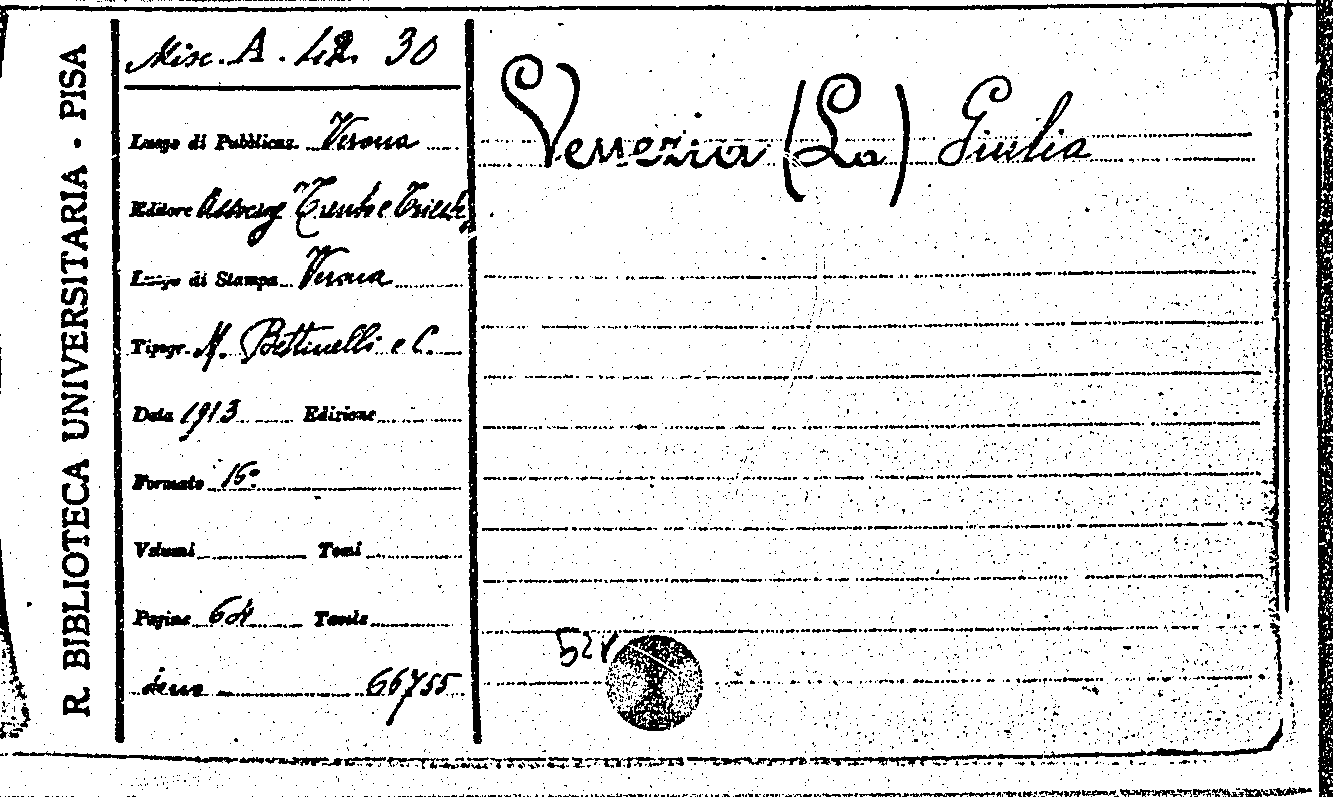 R. BIBLIOTECA UNIVERSITARIA - PISA
Misc. A. 42. 30
Luogo di Pubblicaz. Verona
Editore Trento e Trieste
Luogo di Stampa Verona
Tipogr. M. Bettinelli e C.
Data 1913 Edizione
Formato 16º
Volumi Tomi
Pagine 64 Tavole
66755
Venezia (La) Giulia